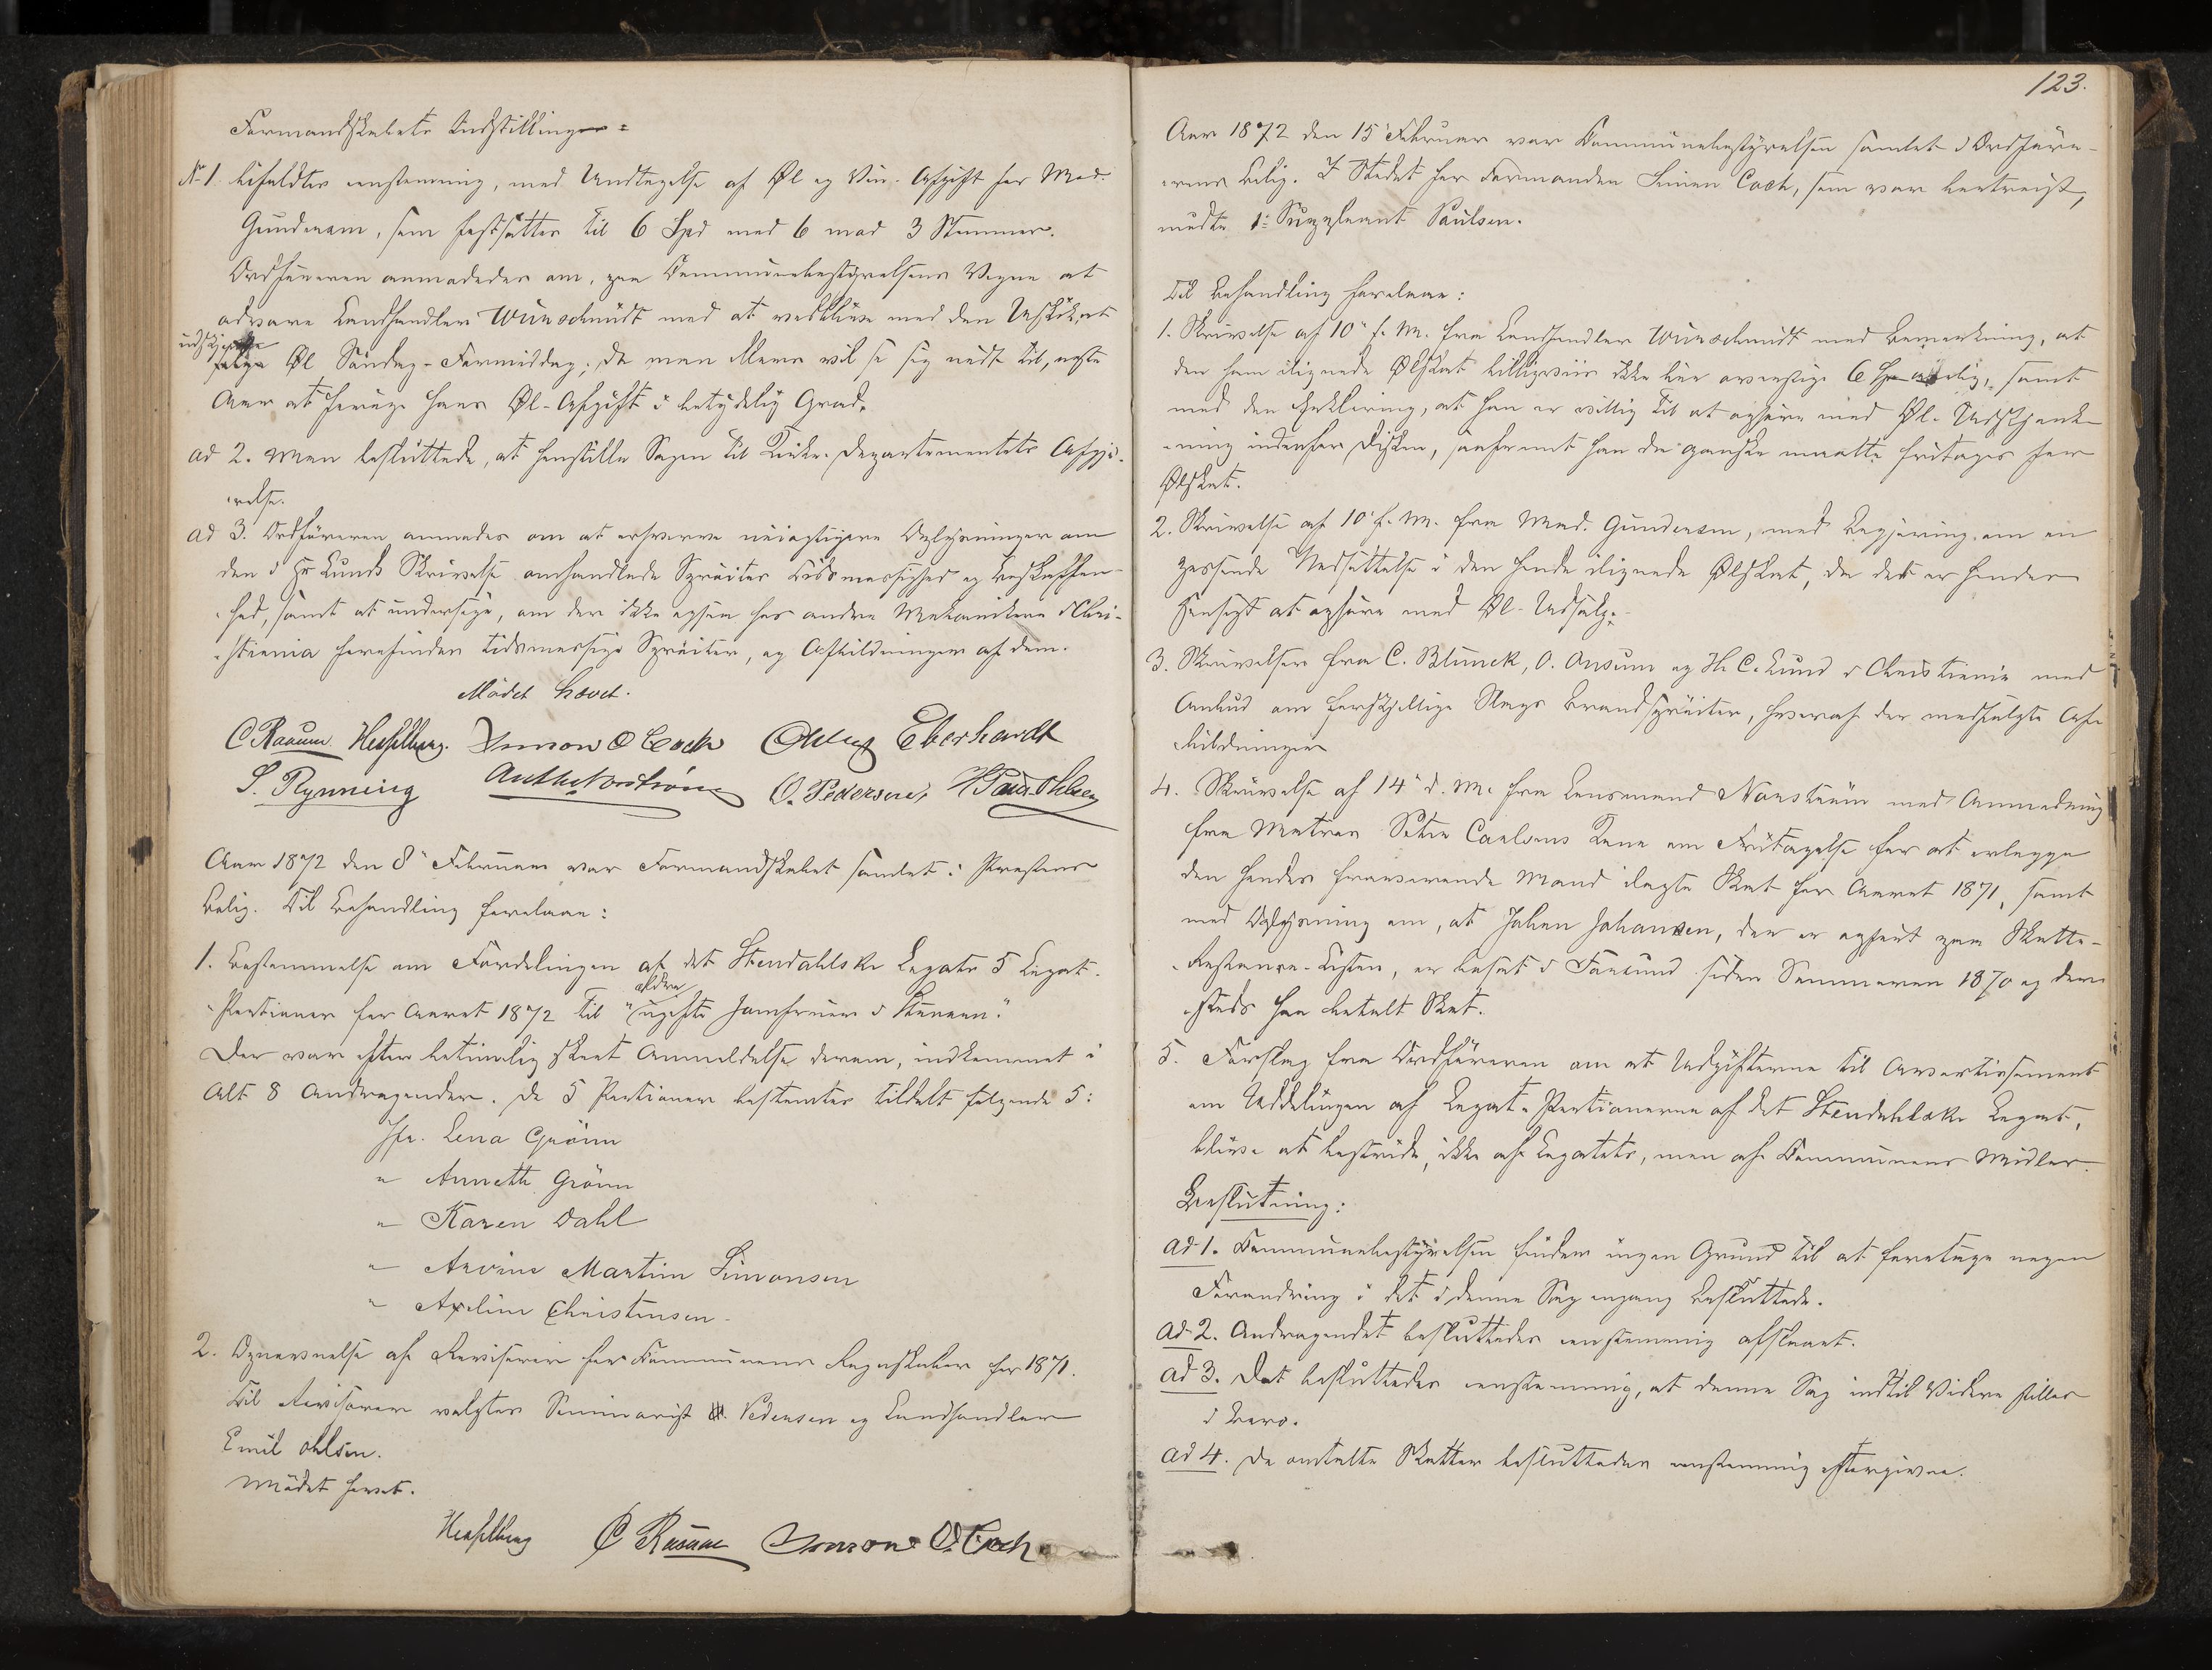 Formandskabets Indstillinger:
No 1. bifaldtes eenstemmig, med Undtagelse af Øl og Vin-Afgift for Mad.
Gundersen, som fastsattes til 6 Spd med 6 mod 3 Stemmer.
Ordføreren anmodedes om, paa Communebestyrelsens Vegne at
advare Landhandler Wünschmidt med at vedblive med den Uskik, at
udskjænke
sælge Øl Søndag-Formiddag; da man ellers vil se sig nødt til, næste
Aar at forøge hans Øl-Afgift i betydelig Grad.
ad 2. Man besluttede, at henstille Sagen til Kirke-Departementets Afgjø-
relse.
ad 3. Ordføreren anmodes om at erhverve nøiagtigere Oplysninger om
den i Hr Lunds Skrivelse omhandlede Sprøites Tidsmæssighed og Beskaffen-
hed, samt at undersøge, om der ikke ogsaa hos andre Mekanikere i Chri-
stiania forefindes tidsmæssige Sprøiter, og Afbildninger af dem.
Mödet hævet.
C Raaum Hesselberg Simon O Coch Eberhardt
S. Rynning O. Pedersen,
Aar 1872 den 8de Februar var Formandskabet samlet i Præstens
Bolig. Til Behandling forelaae:
1. Bestemmelse om Fordelingen af det Stendahlske Legats 5 Legat-
ældre
Portioner for Aaret 1872 til "ugifte Jomfruer i Kragerø."
Der var efter betimelig skeet Anmeldelse derom, indkommet i
Alt 8 Andragender. De 5 Portioner bestemtes tildelt følgende 5:
Jfr. Lena Grönn
" Annette Grönn
" Karen Dahl
" Martine Simonsen
" Axeline Christensen
2. Opnævnelse af Revisorer for Kommunens Regnskaber for 1871.
Til Revisorer valgtes Seminarist Pedersen og Landhandler
Emil Ohlsen.
Mödet hævet.
Hesselberg C Raaum Simon O. Coch
123.
Aar 1872 den 15de Februar var Communebestyrelsen samlet i Ordføre-
rens Bolig. I Stedet for Formanden Simon Coch, som var bortreist,
mødte 1ste Suppleant Paulsen.
Til Behandling forelaae:
1. Skrivelse af 10de f. M. fra Landhandler Wünschmidt med Bemærkning, at
den ham ilignede Ølskat billigviis ikke bør overstige 6 Spd aarlig, samt
med den Erklæring, at han er villig til at ophøre med Øl-Udskjænk-
ning indenfor Disken, saafremt han da ganske maatte fritages for
Ølskat.
2. Skrivelse af 10de f. M. fra Mad. Gundersen, med Begjæring om en
passende Nedsættelse i den hende ilignede Ølskat, da det er hendes
Hensigt at ophøre med Øl-Udsalg.
3. Skrivelser fra C. Blunck, O. Onsum og H. C. Lund i Christiania med
Anbud om forskjellige Slags Brandsprøiter, hvoraf der medfulgte Af-
bildninger
4. Skrivelse af 14de d. M. fra Lensmand Norström med Anmodning
fra Matros Carlsens Kone om Fritagelse for at erlægge
den hendes fraværende Mand ilagte Skat for Aaret 1871, samt
med Oplysning om, at Johan Johansen, der er opført paa Skatte-
Restance-Listen, er bosat i Farsund siden Sommeren 1870 og der-
steds har betalt Skat.
5. Forslag fra Ordføreren om at Udgifterne til Avertissement
om Uddelingen af Legat-Portionerne af det Stendahlske Legat,
blive at bestride, ikke af Legatets, men af Kommunens Midler.
Beslutning:
ad 1. Communebestyrelsen finder ingen Grund til at foretage nogen
Forandring i det i denne Sag engang Besluttede.
ad 2. Andragendet besluttedes eenstemmig afslaaet.
ad 3. Det besluttedes eenstemmig, at denne Sag indtil Videre stilles
i Bero.
ad 4. De omtalte Skatter besluttedes eenstemmig eftergivne.